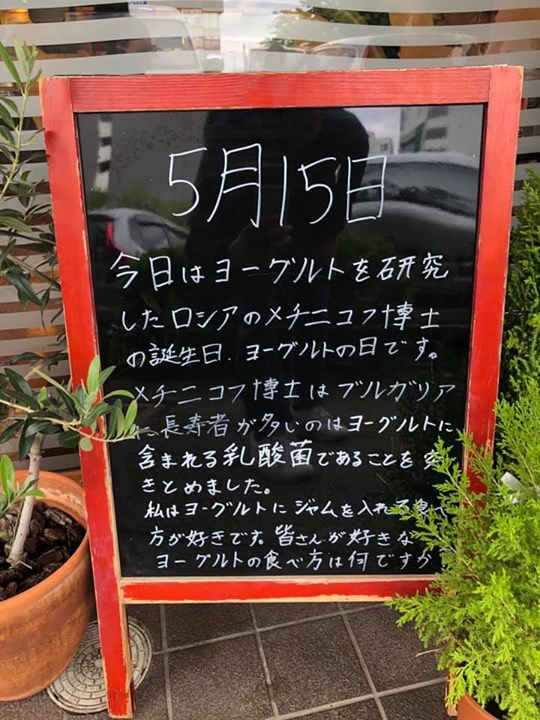 5月15日
今日はヨーグルトを研究
したロシアのメチニコフ博士
の誕生日、ヨーグルトの日です。
メチニコフ博士はブルガリア
に長寿者が多いのはヨーグルトに
含まれる乳酸菌であることを突
きとめました。
私はヨーグルトにジャムを入れる食べ
方が好きです。皆さんが好きな
ヨーグルトの食べ方は何ですか